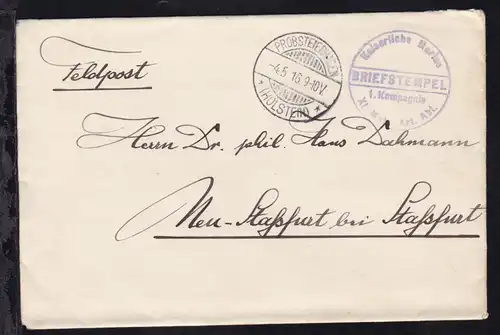 Feldpost
PROBSTEIERHAGEN
-4.5.16.9-10V.
* (HOLSTEIN) *
Kaiserliche Marine
BRIEFSTEMPEL
1. Kompagnie
XI. Art. Abt.
Herrn Dr. phil. Hans Dahmann
Neu-Staßfurt bei Staßfurt